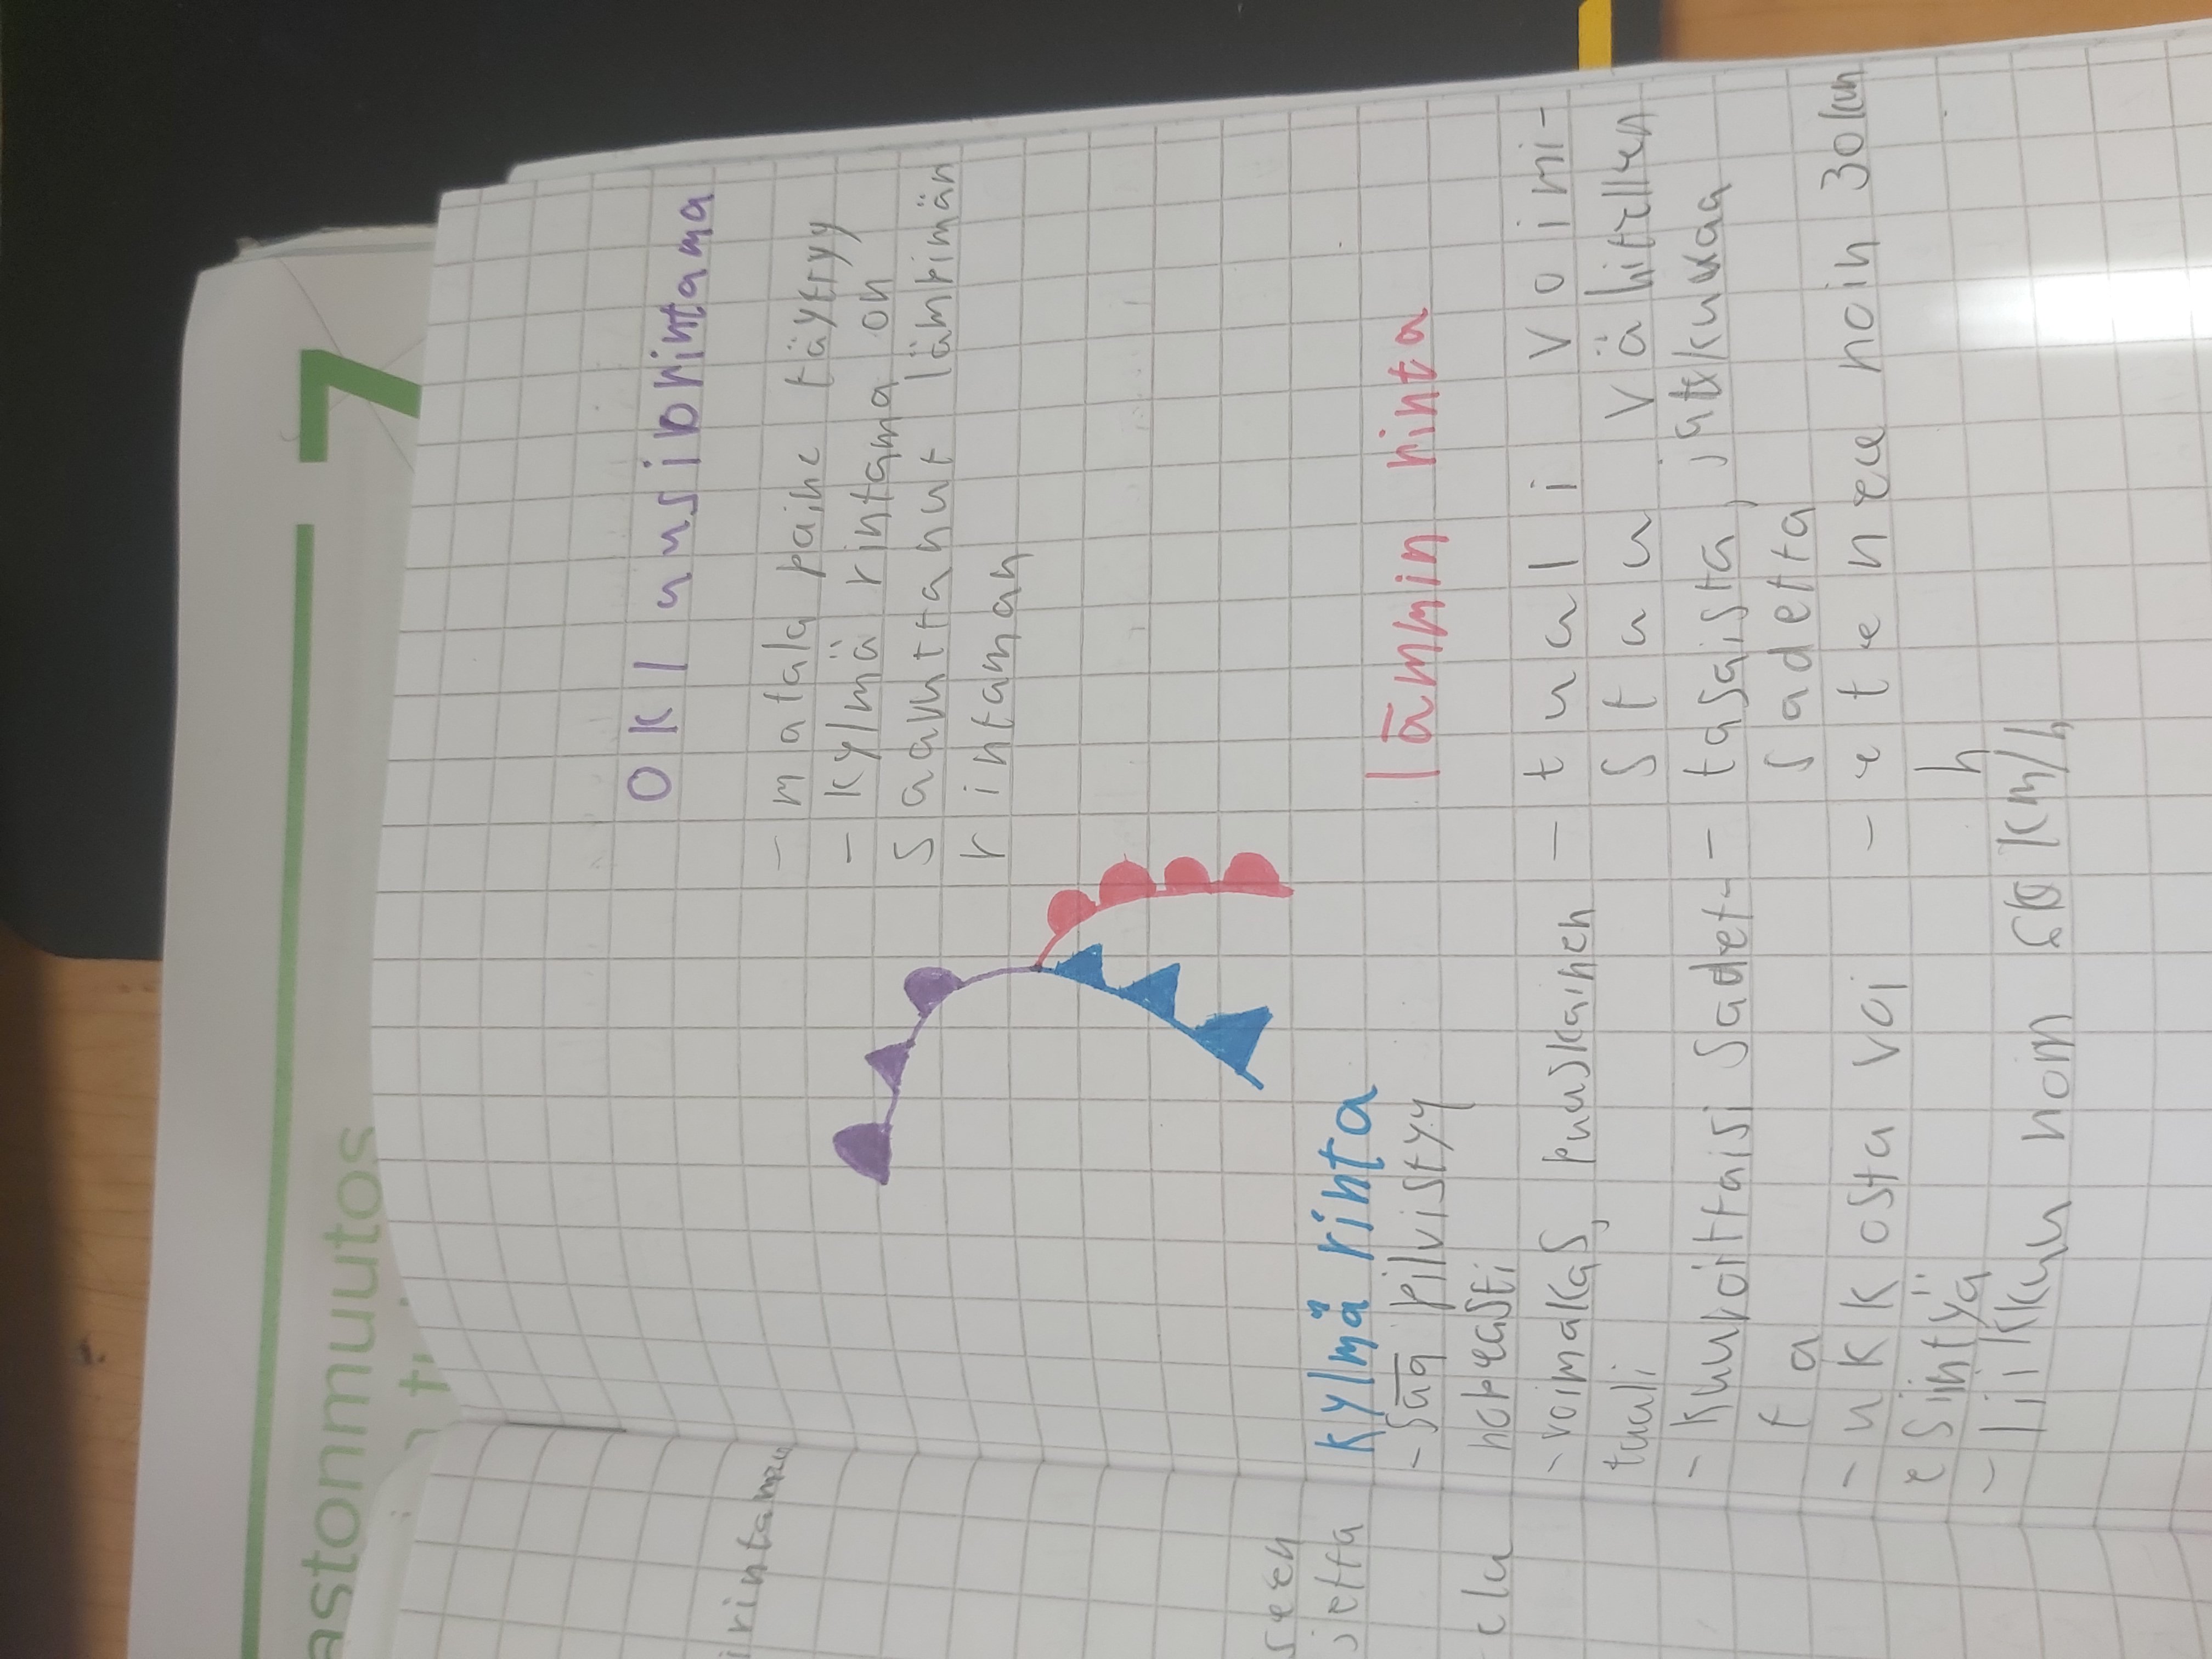 7
astonmuutos
irintama
seen
jetta
elu
Okluusiorintama
- matala paine täyttyy
- kylmä rintama on
saavuttanut lämpimän
rintaman
Kylmä rinta
- sää pilvistyy
nopeasti
- voimakas, puuskainen
tuuli
- kuuroittaisi sadet-
ta
- ukkosta voi
esiintyä
- liikkuu noin 50 km/h
lämmin rinta
- tuuli voimi-
stuu vähitellen
- tasaista, jatkuvaa
sadetta
- etenee noin 30 km
h